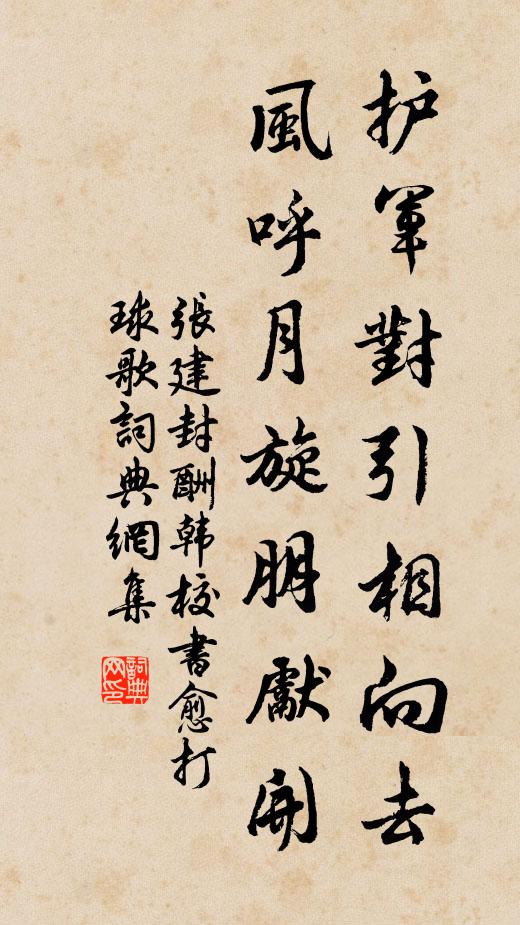 护軍對引相向去
風呼月旋朋獻開
張建封酬韩校書愈打
球歌詞典網集
詞典
网印